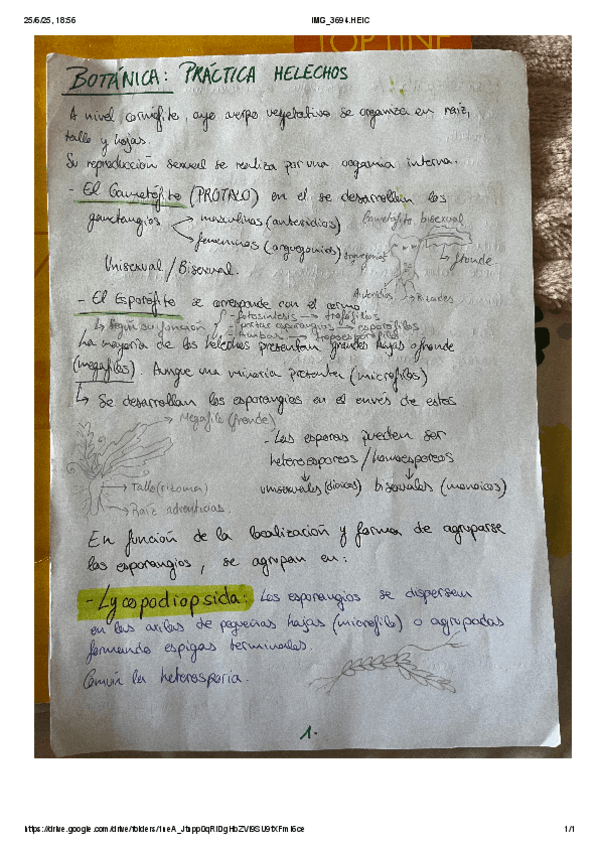 25/6/25, 18:56
IMG_3694.HEIC
TOP LINE
BOTÁNICA: PRÁCTICA HELECHOS
A nivel cormófito, cuyo cuerpo vegetativo se organiza en raíz,
tallo y hojas.
Su reproducción sexual se realiza por una oogamia interna.
- El Gametófito (PROTALO) en el se desarrollan los
gametangios
masculinos (anteridios)
femeninos (arquegonios)
Gametófito bisexual
fronde
Anteridios
Rizoides
Unisexual / Bisexual.
- El Esporófito se corresponde con el cormo
Según su función
- fotosíntesis → trofófilos
- portar esporangios → esporófilos
- Ambas →
La mayoría de los helechos presentan grandes hojas o fronde
(megafilos). Aunque una minoría presentan (microfilos)
↳ Se desarrollan los esporangios en el envés de estos
Megafilo (fronde)
→ Tallo (rizoma)
→ Raíz adventicias.
- Las esporas pueden ser
heterosporeas / homosporeas
unisexuales (dioicos) bisexuales (monoicos)
En función de la localización y forma de agruparse
los esporangios, se agrupan en:
- Lycopodiopsida: Los esporangios se dispersen
en las axilas de pequeñas hojas (microfilo) o agrupadas
formando espigas terminales.
Común la heterosporia.
1.
1/1